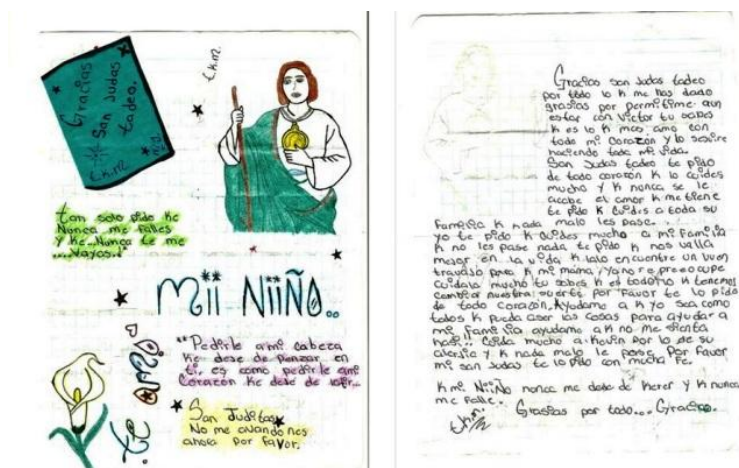 Gracias
San Judas
tadeo.
t.k.m.
t.k.m.
Tan solo pido ke
Nunca me falles
y ke...Nunca te me
....Vayas..
Mii Niiño..
"Pedirle ami cabeza
Ke deje de penzar en
ti, es como pedirle ami
Corazón Ke deje de latir...
te
San Juditas
No me avandones
ahora por favor.
Gracias san Judas tadeo
por todo lo k me has dado
grasias por permitime aun
estar con Victor tu sabes
k es lo k mas amo con
todo mi Corazón y lo seguire
haciendo toda mi vida.
San Judas tadeo te pido
de todo corazón k lo cuides
mucho y k nunca se le
acabe el amor k me tiene
te pido k cuides a toda su
familia k nada malo les pase...
yo te pido k cuides mucho a mi familia
k no les pase nada te pido k nos valla
mejor en la vida, k lalo encuentre un buen
travajo para k mi mama ya no se preocupe
cuidalo mucho tu sabes k es todo lo k tenemos
cambiar nuestra suerte por favor te lo pido
de todo Corazón. Ayudame a k yo sea como
todos k pueda aser las cosas para ayudar a
mi familia ayudame a k no me sienta
mal!! Cuida mucho a Kevin por lo de su
alerjia y k nada malo le pase. Por favor
mi san Judas te lo pido con mucha Fe.
k mi Niiño nunca me deje de kerer y k nunca
me falle..
Grasias por todo... Gracias.
t.k.m.